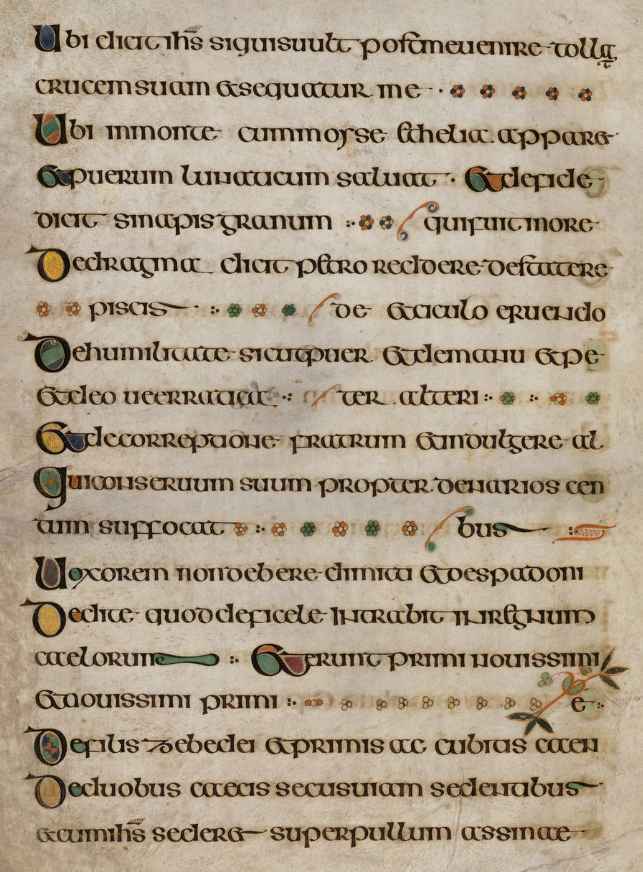 Ubi dicit ihs siquisuult postmeuenire tollat
crucem suam &sequatur me
Ubi inmonte cummoyse &helia apparet
&puerum lunaticum saluat · &defide
dicit sinapis granum quifuit more
Dedragma dicit petro recldere destatere
piscis de &aculo eruendo
Dehumilitate sicutpuer &demanu &pe
&deo ueerradicat ter alteri
&decorreptione fratrum &indulgere al
quiconseruum suum propter denarios cen
tum suffocat bus
Uoxorem nondebere dimitti &despadoni
Dedite quoddeficele intrabit inregnum
caelorum &erunt primi nouissimi
&nouissimi primi e
Defilis zebedei &primis ac cubitis caen
Deduobus caecis secusuiam sedentibus
&cumihs seder& superpullum assinae